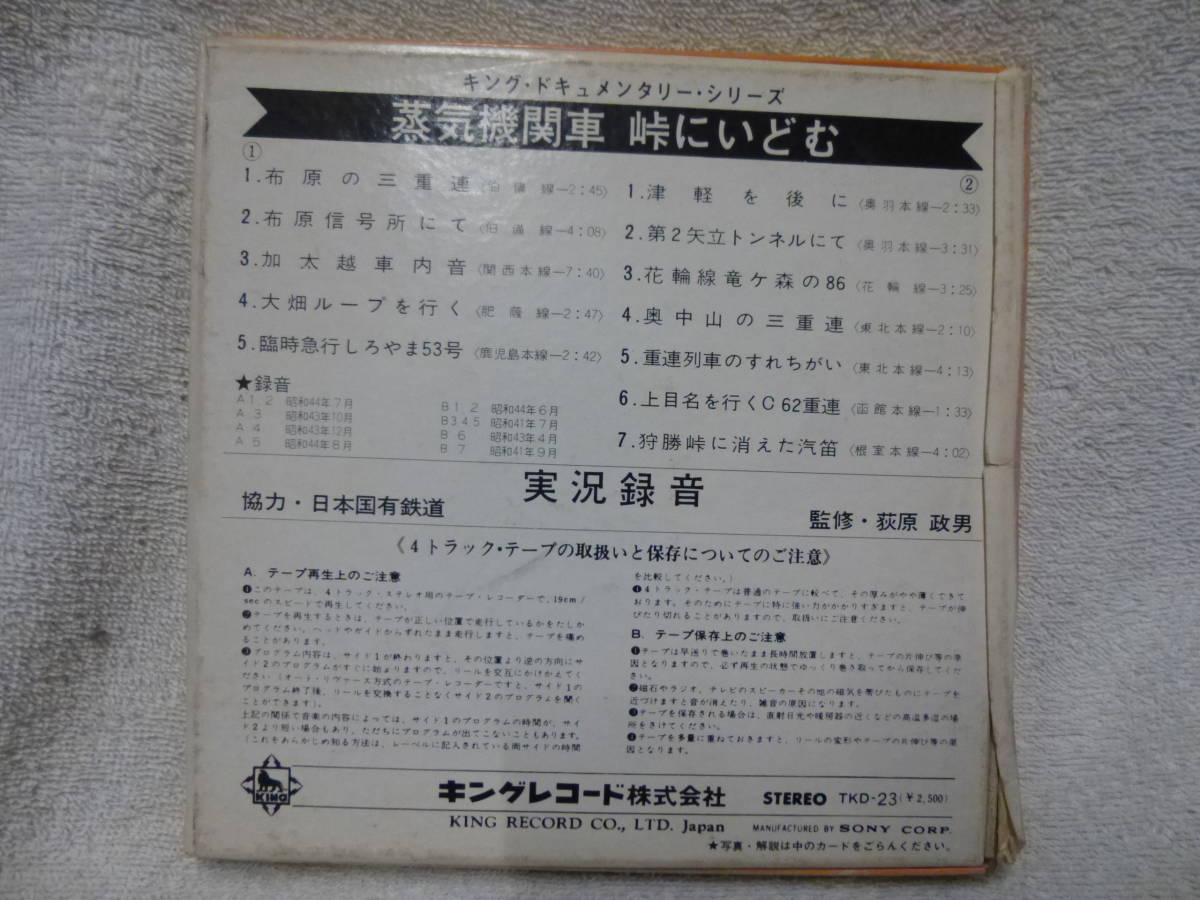 キング・ドキュメンタリー・シリーズ
蒸気機関車 峠にいどむ
①
1.布原の三重連〈伯備線—2:45〉
2.布原信号所にて〈伯備線—4:08〉
3.加太越車内音〈関西本線—7:40〉
4.大畑ループを行く〈肥薩線—2:47〉
5.臨時急行しろやま53号〈鹿児島本線—2:42〉
★録音
A 1. 2 昭和44年7月
A 3 昭和43年10月
A 4 昭和43年12月
A 5 昭和44年8月
B 1. 2 昭和44年6月
B 3 4 5 昭和41年7月
B 6 昭和43年4月
B 7 昭和41年9月
②
1.津軽を後に〈奥羽本線—2:33〉
2.第2矢立トンネルにて〈奥羽本線—3:31〉
3.花輪線竜ケ森の86〈花輪線—3:25〉
4.奥中山の三重連〈東北本線—2:10〉
5.重連列車のすれちがい〈東北本線—4:13〉
6.上目名を行くC62重連〈函館本線—1:33〉
7.狩勝峠に消えた汽笛〈根室本線—4:02〉
実況録音
協力・日本国有鉄道
監修・荻原 政男
《4トラック・テープの取扱いと保存についてのご注意》
A. テープ再生上のご注意
❶このテープは、4トラック・ステレオ用のテープ・レコーダーで、19cm/
secのスピードで再生してください。
❷テープを再生するときは、テープが正しい位置で走行しているかをたしか
めてください。ヘッドやガイドからずれたまま走行しますと、テープを痛め
ることがあります。
❸プログラム内容は、サイド1が終わりますと、その位置より逆の方向にサ
イド2のプログラムがすぐに始まりますので、リールを交互にかけかえてく
ださい(オート・リヴァース方式のテープ・レコーダーですと、サイド1の
プログラム終了後、リールを交換することなくサイド2のプログラムを聞く
ことができます)。
上記の関係で音楽の内容によっては、サイド1のプログラムの時間が、サイ
ド2より短い場合もあり、ただちにプログラムが出てこないこともあります。
(これをあらかじめ知る方法は、レーベルに記入されている両サイドの時間
を比較してください。)
❹4トラック・テープは普通のテープに較べて、その厚みがやや薄くできて
おります。そのためにテープに特に強い力がかかりすぎますと、テープが伸
びたり切れることがありますので、取扱いにご注意ください。
B. テープ保存上のご注意
❶テープは早送りで巻いたまま長時間放置しますと、テープの片伸び等の原
因となりますので、必ず再生の状態でゆっくり巻き取ってから保存してくださ
い。
❷磁石やラジオ、テレビのスピーカーその他の磁気を帯びたものにテープを
近づけますと音が消えたり、雑音の原因になります。
❸テープを保存される場合は、直射日光や暖房器の近くなどの高温多湿の場
所をさけてください。
❹テープを多量に重ねておきますと、リールの変形やテープの片伸び等の原
因となります。
KING
キングレコード株式会社 STEREO TKD-23(¥2,500)
KING RECORD CO., LTD. Japan MANUFACTURED BY SONY CORP.
★写真・解説は中のカードをごらんください。